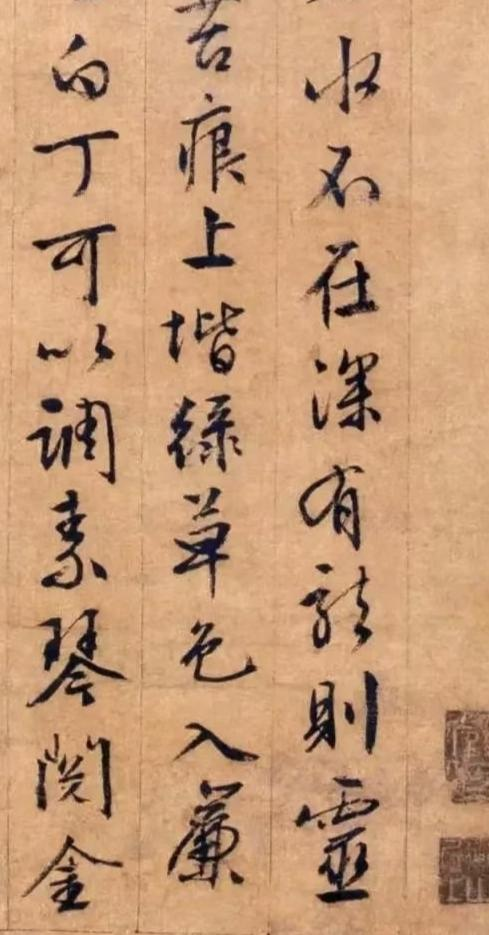 水不在深有龍則靈
苔痕上堦緑草色入簾
白丁可以調素琴閱金